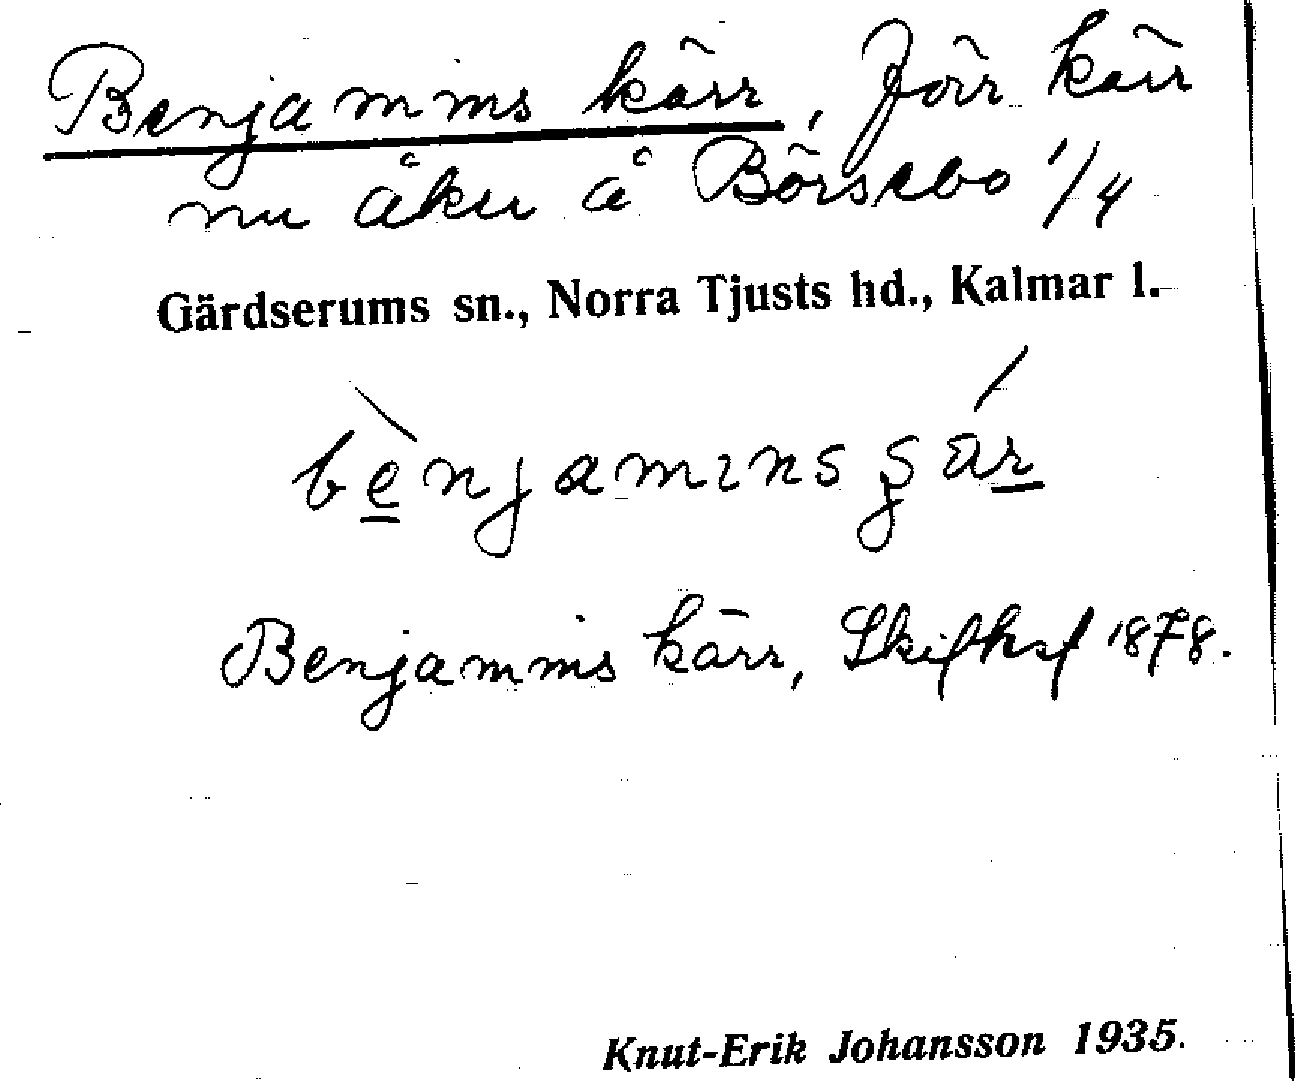 Benjamins kärr, förr kärr
nu åker å Börsebo 1/4
Gärdserums sn., Norra Tjusts hd., Kalmar l.
Benjamins kärr, Skifhsf 1878.
Knut-Erik Johansson 1935.